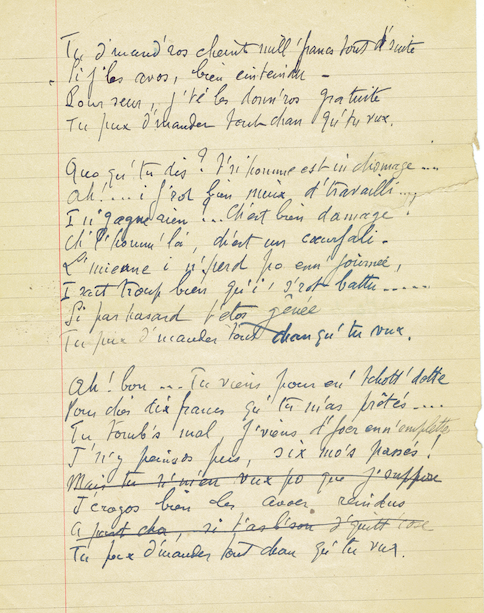 Tu d'mand'ros cheint mill' francs tout d'suite
Si j'les avos, bien einteindu –
Pour seur, j'té les donn'ros gratuite
Tu peux d'mander tout chan qu'tu vux.
Quo qu'tu dis ? T'n'homme est in chomage ....
Ah ! ... i f'rot bien mieux d'travailli ...
I n'gagne rien ... Ch'est bien damage !
Ch'l'homm' là, ch'est un cœurfali.
L'mienne i n'perd po enn' journée,
I sait troup bien qu'i s'rot battu .....
Si par hasard t'étos gênée
Tu peux d'mander tout chan qu'tu vux.
Ah ! bon ... Tu viens pour eun' tchott' dette
Pour ches dix francs qu'tu m'as prêtés ....
Tu tomb's mal j'viens d'foér enn' emplette
J'n'y peinsos pus, six mo's passés !
Mais tu n'm'en vux po que j'suppose
J'croyos bien les avoer reindus
A point cha, si t'as b'soin d'quett' cose
Tu peux d'mander tout chan qu'tu vux.